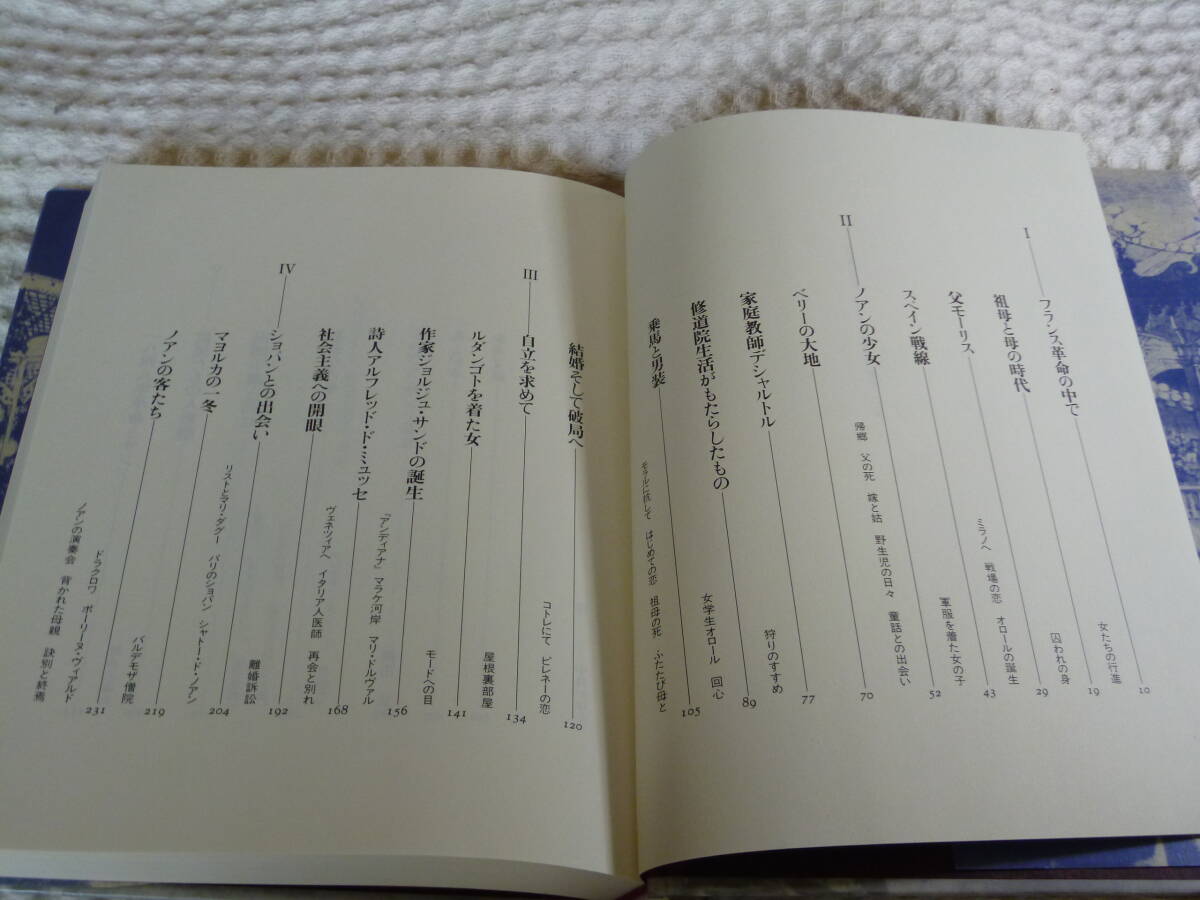 I──フランス革命の中で──10
女たちの行進
祖母と母の時代──19
囚われの身
父モーリス──29
ミラノへ 戦場の恋 オロールの誕生
スペイン戦線──43
軍服を着た女の子
II──ノアンの少女──52
帰郷 父の死 嫁と姑 野生児の日々 童話との出会い
ベリーの大地──70
家庭教師デシャルトル──77
狩りのすすめ
修道院生活がもたらしたもの──89
女学生オロール 回心
乗馬と男装──105
モラルに抗して はじめての恋 祖母の死 ふたたび母と
結婚そして破局へ──120
コトレにて ピレネーの恋
III──自立を求めて──134
屋根裏部屋
ルダンゴトを着た女──141
モードへの目
作家ジョルジュ・サンドの誕生──156
「アンディアナ」 マラケ河岸 マリ・ドルヴァル
詩人アルフレッド・ド・ミュッセ──168
ヴェネツィアへ イタリア人医師 再会と別れ
社会主義への開眼──192
離婚訴訟
IV──ショパンとの出会い──204
リストとマリ・ダグー パリのショパン シャトー・ド・ノアン
マヨルカの一冬──219
バルデモザ僧院
ノアンの客たち──231
ドラクロワ ポーリーヌ・ヴィアルド
ノアンの演奏会 背かれた母親 訣別と終焉